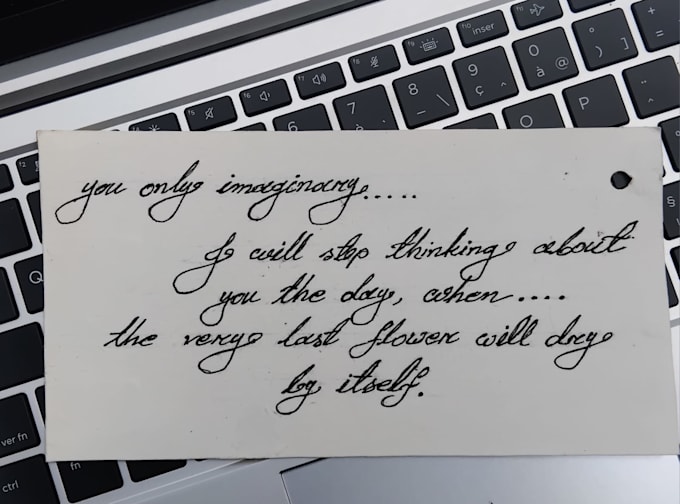 you only imaginary.....
I will stop thinking about
you the day, when....
the very last flower will dry
by itself.
f5
f6
f7
f8
f9
f10
inser
f11
6
7
8 _ \
9 ç ^
0 à @
° ) ]
+ =
¨ ^
O
P
Q
ver fn
fn
ctrl